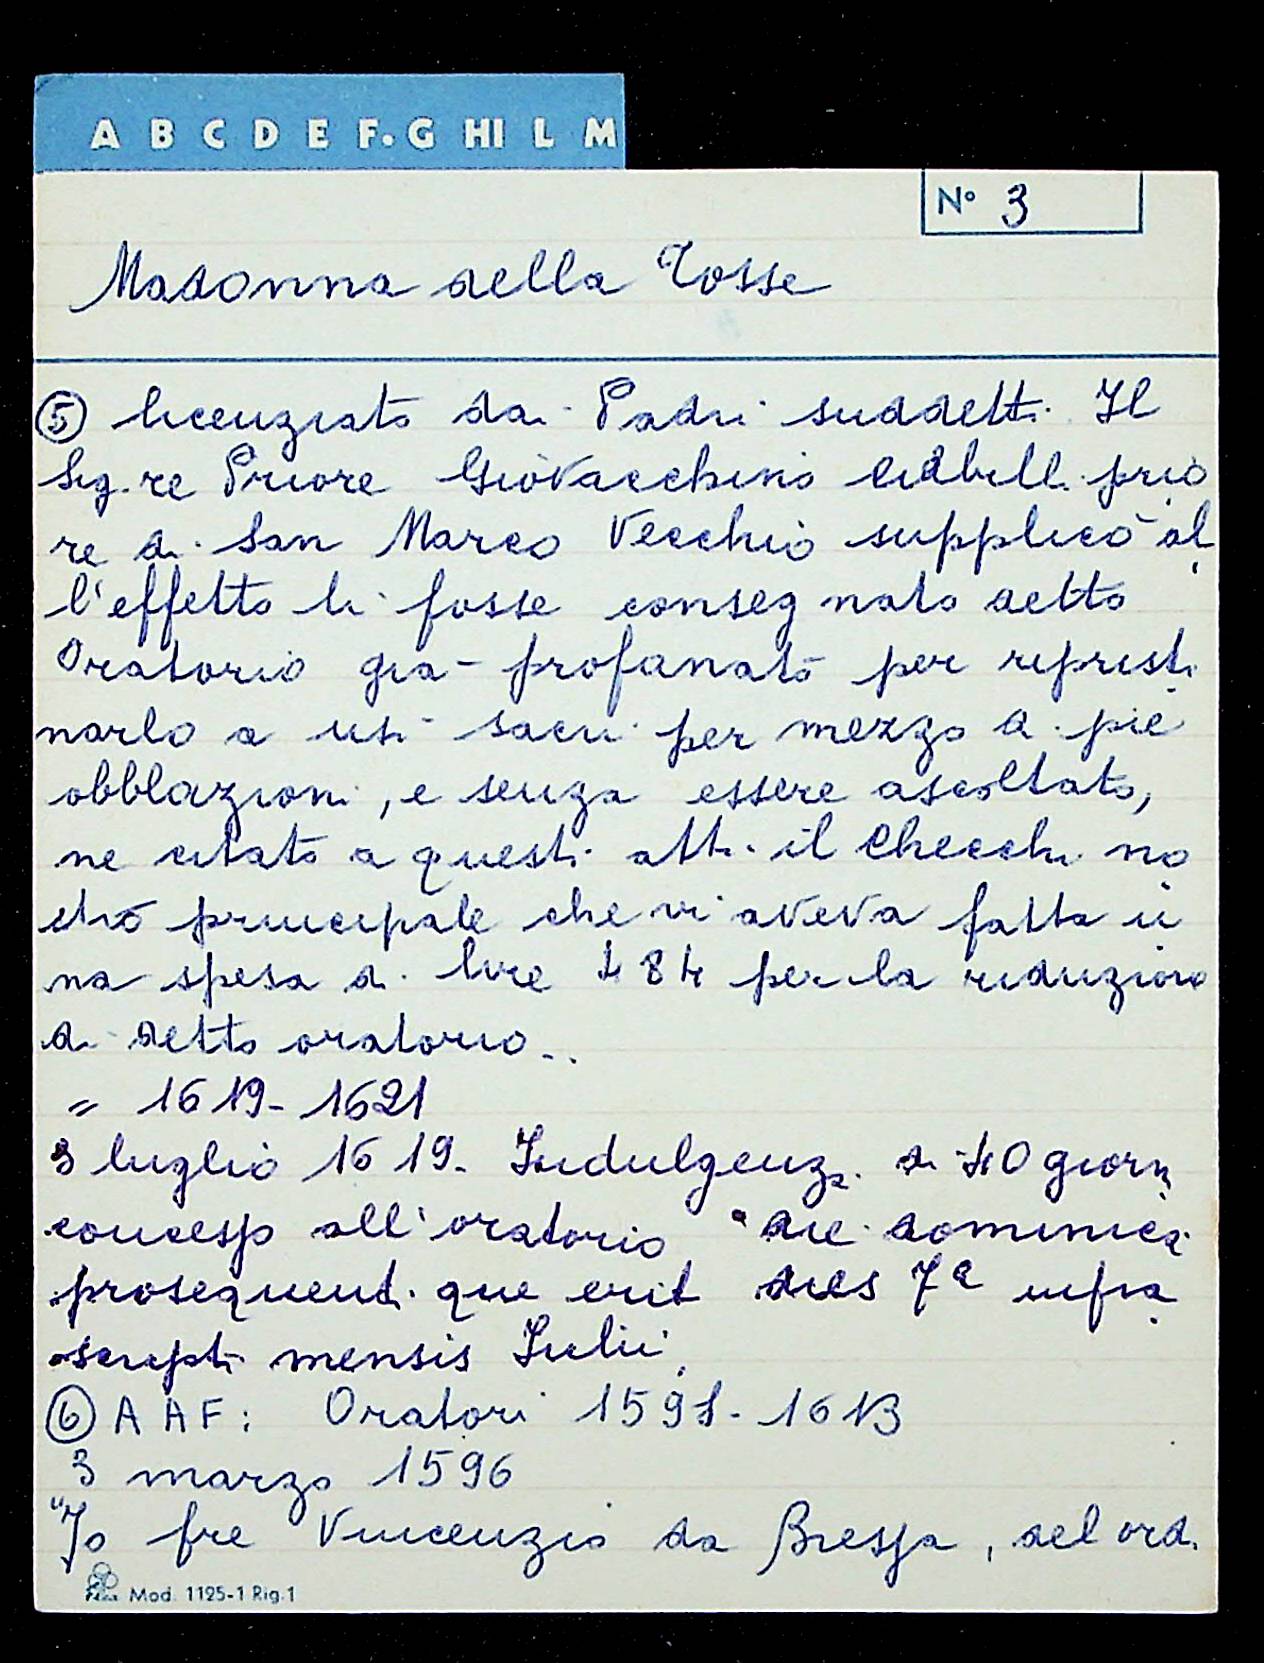 A B C D E F. G HI L M
N° 3
Madonna della Tosse
⑤ licenziato dai Padri suddetti. Il
Sig.re Priore Giovacchino prio
re di San Marco Vecchio supplicò al
l'effetto li fosse consegnato detto
Oratorio già profanato per ripristi
narlo a usi sacri per mezzo di pie
obblazioni, e senza essere ascoltato,
ne citato a questi atti il Checchi no
stro principale che vi aveva fatta u
na spesa di lire 484 per la riduzione
di detto oratorio..
= 1619-1621
3 luglio 1619. Indulgenza di 40 giorni
concessa all'oratorio "die dominica
prosequenti que erit dies 7ª infra
scripti mensis Iulii
⑥ A A F: Oratori 1591-1613
3 marzo 1596
"Io fre Vincenzio da Bressa, del ord.
Mod. 1125-1 Rig.1